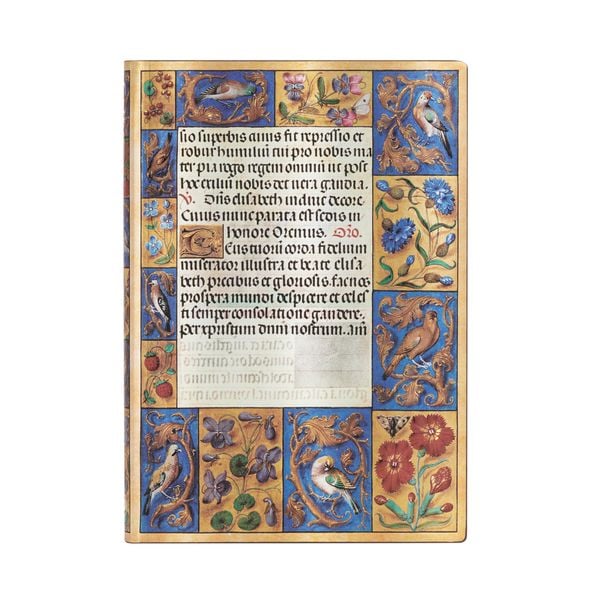 sio superbis cuius fit repressio et
robur humiliū cui pro nobis ma
ter pia rego regem omniū ut post
hec exiliū nobis det uera gaudia.
V. Dn̄s elisabeth induit decore.
Cuius nunc parata est sedis in
honore Oremus. Oro.
Deus tuorū corda fidelium
miserator illustra et beate elisa
beth precibus et gloriosis. fac nos
prospera mundi despicere et celes
ti semper consolatione gaudere.
per xpristum dn̄m nostrum. am̄